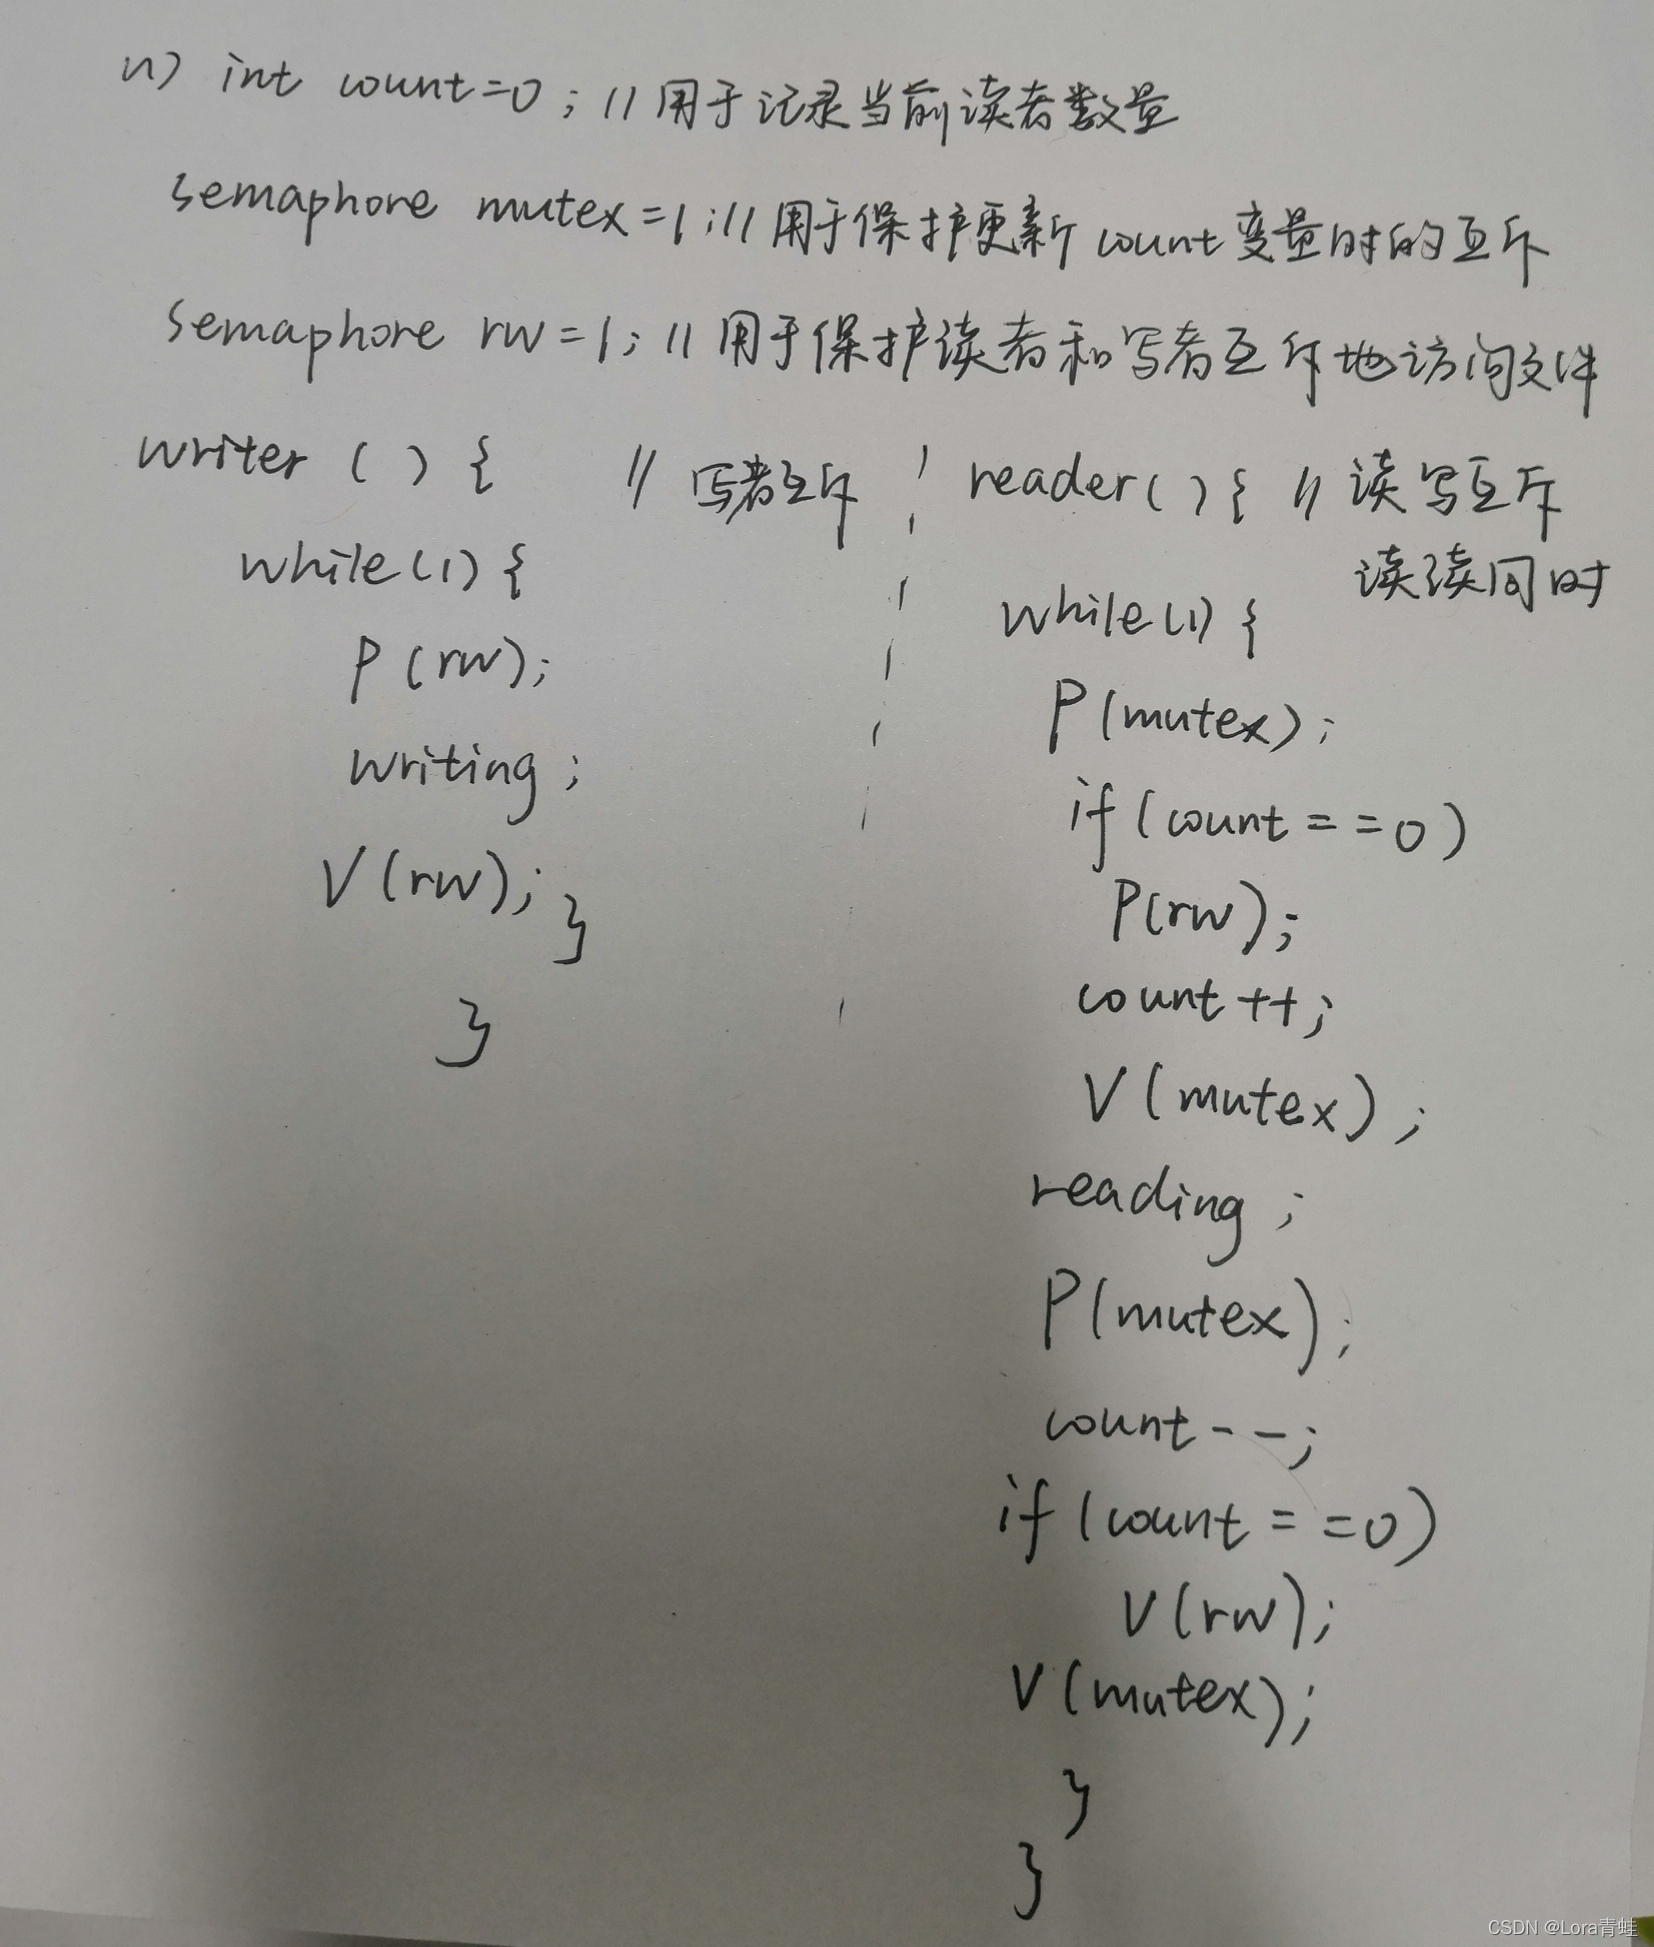 (1) int count=0; //用于记录当前读者数量
semaphore mutex=1; //用于保护更新count变量时的互斥
semaphore rw=1; //用于保护读者和写者互斥地访问文件
writer ( ) { //写者互斥
while(1) {
P (rw);
writing;
V (rw); }
}
reader( ) { //读写互斥
读读同时
while(1) {
P(mutex);
if (count==0)
P(rw);
count++;
V(mutex);
reading;
P(mutex);
count--;
if (count==0)
V(rw);
V(mutex);
}
}
CSDN @Lora青蛙